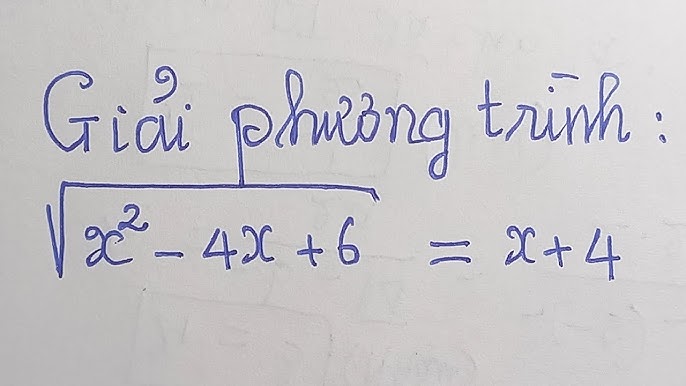 Giải phương trình:
√(x² - 4x + 6) = x + 4